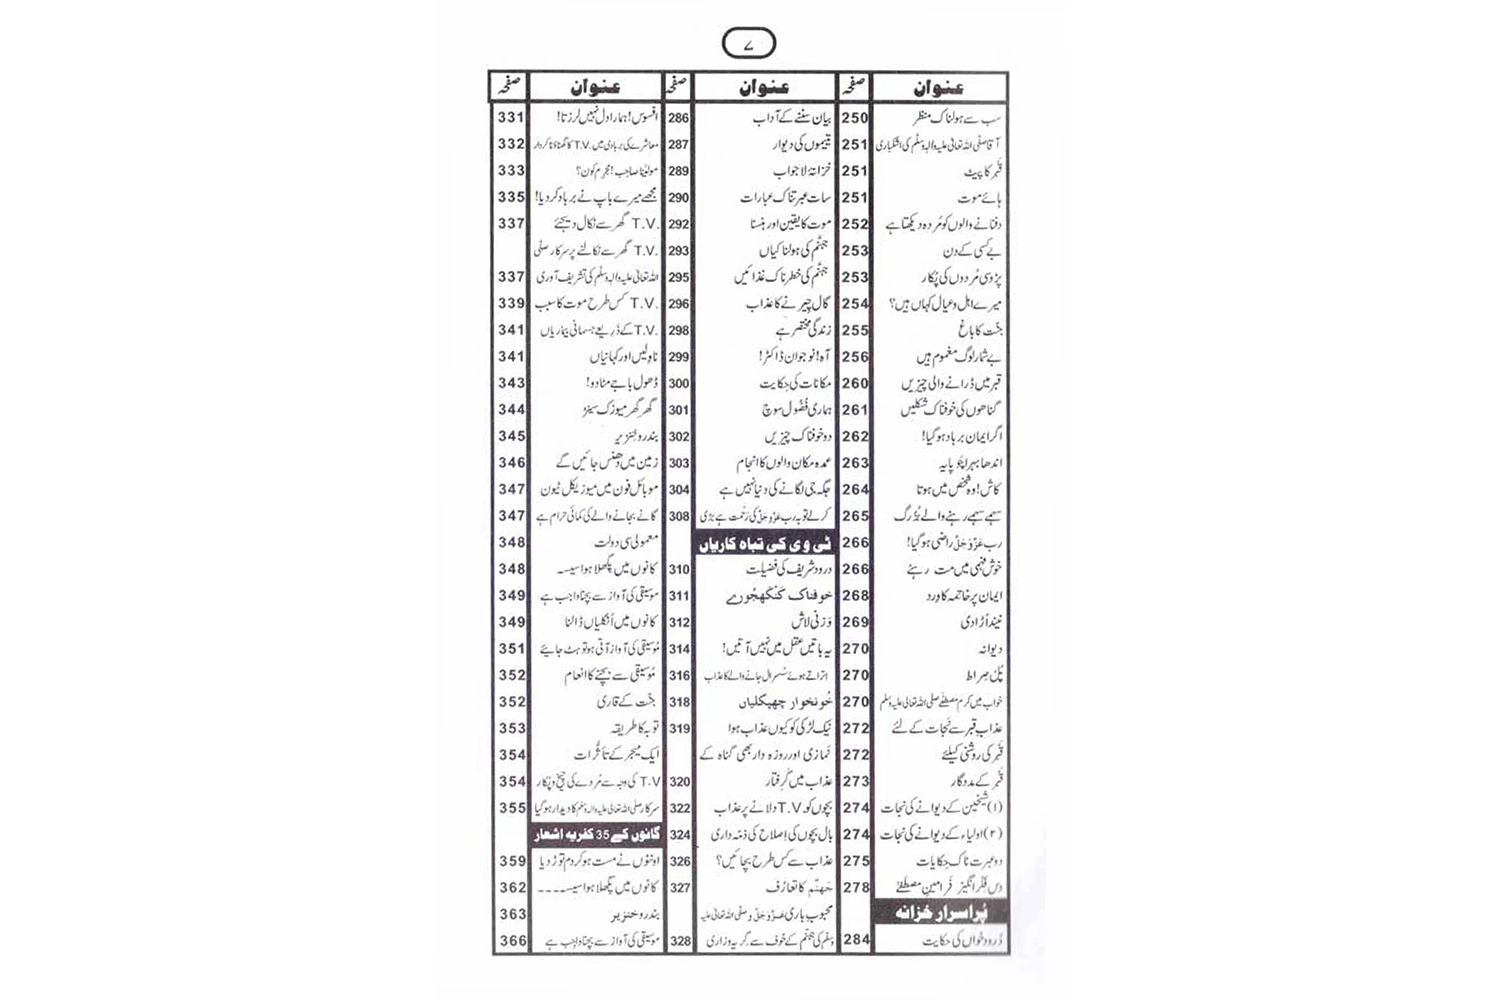 ۷
عنوان صفحہ عنوان صفحہ عنوان صفحہ
سب سے ہولناک منظر 250
آقا صلی اللہ تعالیٰ علیہ والہ وسلم کی اشکباری 251
قبر کا پیٹ 251
ہائے موت 251
دفنانے والوں کو مُردہ دیکھتا ہے 252
بے کسی کے دن 253
پڑوسی مُردوں کی پُکار 253
میرے اہل و عیال کہاں ہیں؟ 254
جنّت کا باغ 255
بے شمار لوگ مغموم ہیں 256
قبر میں ڈرانے والی چیزیں 260
گناھوں کی خوفناک شکلیں 261
اگر ایمان برباد ہو گیا! 262
اندھا بہرا چوپایہ 263
کاش! وہ شخص میں ہوتا 264
سہمے سہمے رہنے والے بُزُرگ 265
رب عَزَّوَجَلَّ راضی ہو گیا! 266
خوش فہمی میں مت رہئے 266
ایمان پر خاتمہ کا وِرد 268
نیند اُڑا دی 269
دیوانہ 270
پُل صِراط 270
خواب میں کرم مصطفٰے صلی اللہ تعالیٰ علیہ وسلم 270
عذاب قبر سے نَجات کے لئے 272
قبر کی روشنی کیلئے 272
قبر کے مددگار 273
(۱) شیخین کے دیوانے کی نجات 274
(۲) اولیاء کے دیوانے کی نجات 274
دو عبرت ناک حِکایات 275
دس فکر انگیز فرامینِ مصطفٰے 278
پُراسرار خزانہ
دُرود خواں کی حکایت 284
بیان سننے کے آداب 286
یتیموں کی دیوار 287
خزانۂ لاجواب 289
سات عبرتناک عبارات 290
موت کا یقین اور ہنسنا 292
جہنّم کی ہولناکیاں 293
جہنّم کی خطرناک غذائیں 295
گال چیرنے کا عذاب 296
زندگی مختصر ہے 298
آہ! نوجوان ڈاکٹر! 299
مکانات کی حِکایت 300
ہماری فُضُول سوچ 301
دو خوفناک چیزیں 302
عمدہ مکان والوں کا انجام 303
جگہ جی لگانے کی دنیا نہیں ہے 304
کر لے توبہ رب عَزَّوَجَلَّ کی رَحمت ہے بڑی 308
ٹی وی کی تباہ کاریاں
درود شریف کی فضیلت 310
خوفناک کَنکَھجُورے 311
وَزنی لاش 312
یہ باتیں عقل میں نہیں آتیں! 314
اِتراتے ہوئے سُسرال جانے والے کا عذاب 316
خُونخوار چھپکلیاں 318
نیک لڑکی کو کیوں عذاب ہوا 319
نَمازی اور روزہ دار بھی گناہ کے
عذاب میں گرِفتار 320
بچّوں کو T.V دلانے پر عذاب 322
بال بچّوں کی اِصلاح کی ذمّہ داری 324
عذاب سے کس طرح بچائیں؟ 326
جَہنّم کا تعارُف 327
محبوب باری عَزَّوَجَلَّ و صلی اللہ تعالیٰ علیہ
وسلم کی جہنّم کے خوف سے گِریہ وزاری 328
افسوس! ہمارا دل نہیں لرزتا! 331
معاشرے کی بربادی میں T.V. کا گھناؤنا کردار 332
مولیٰنا صاحِب! مجرِم کون؟ 333
مجھے میرے باپ نے برباد کر دیا! 335
T.V. گھر سے نکال دیجئے 337
T.V. گھر سے نکالنے پر سرکار صلی
اللہ تعالیٰ علیہ والہ وسلم کی تشریف آوری 337
T.V. کس طرح موت کا سبب 339
T.V. کے ذَرِیعے جسمانی بیماریاں 341
ناولیں اور کہانیاں 341
ڈھول باجے مٹا دو! 343
گھر گھر میوزک سینٹر 344
بندر و خنزیر 345
زمین میں دھنس جائیں گے 346
موبائل فون میں میوزیکل ٹیون 347
گانے بجانے والے کی کمائی حرام ہے 347
معمولی سی دولت 348
کانوں میں پگھلا ہوا سیسہ 348
موسیقی کی آواز سے بچنا واجب ہے 349
کانوں میں اُنگلیاں ڈالنا 349
مُوسیقی کی آواز آتی ہو تو ہٹ جائیے 351
مُوسیقی سے بچنے کا انعام 352
جنّت کے قاری 352
توبہ کا طریقہ 353
ایک میجر کے تأثُّرات 354
T.V کی وجہ سے مُردے کی چیخ و پکار 354
سرکار صلی اللہ تعالیٰ علیہ والہ وسلم کا دیدار ہو گیا 355
گانوں کے 35 کفریہ اشعار
اونٹوں نے مست ہو کر دم توڑ دیا 359
کانوں میں پگھلا ہوا سیسہ۔۔۔۔ 362
بندر و خنزیر 363
موسیقی کی آواز سے بچنا واجب ہے 366